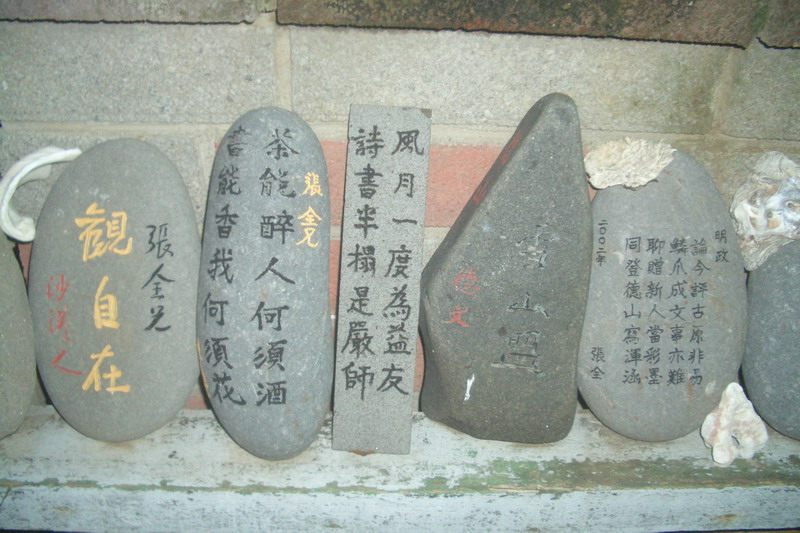 張金兄
觀自在
張金兄
茶能醉人何須酒
書能香我何須花
風月一度為益友
詩書半榻是嚴師
德文
明政
論今評古原非易
鱗爪成文事亦難
聊贈新人當彩墨
同登德山寫渾涵
張全
二〇〇二年